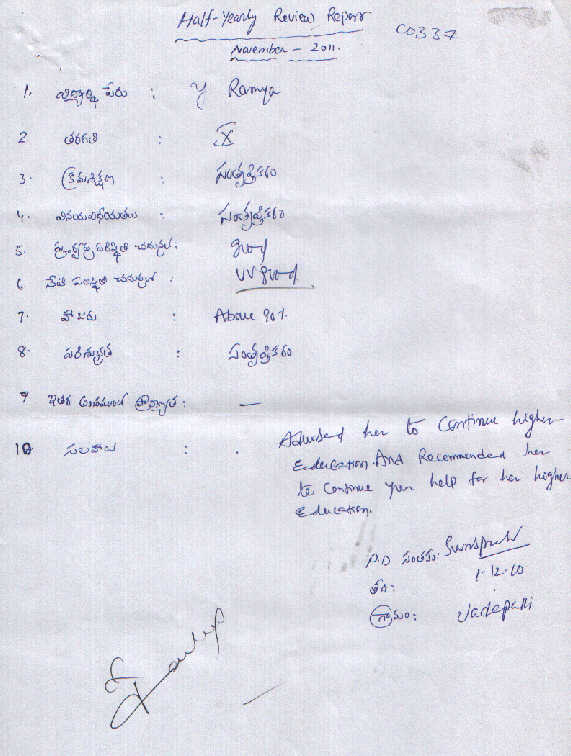 Half-Yearly Review Report
C0334
November - 2011.
1. విద్యార్థి పేరు : Y Ramya
2 తరగతి : X
3. క్రమశిక్షణ : సంతృప్తికరం
4. వినయవిధేయతలు : సంతృప్తికరం
5. చదువు : good
6 నేటి పరిస్థితి చదువులో : VV good
7. హాజరు : Above 90%
8. పరిశుభ్రత : సంతృప్తికరం
9 ఇతర : —
10 సలహాలు : . Advised her to Continue higher
Education. And Recommended her
to Continue your help for her higher
Education.
P.D సంతకం:
తేది: 1-12-10
గ్రామం: